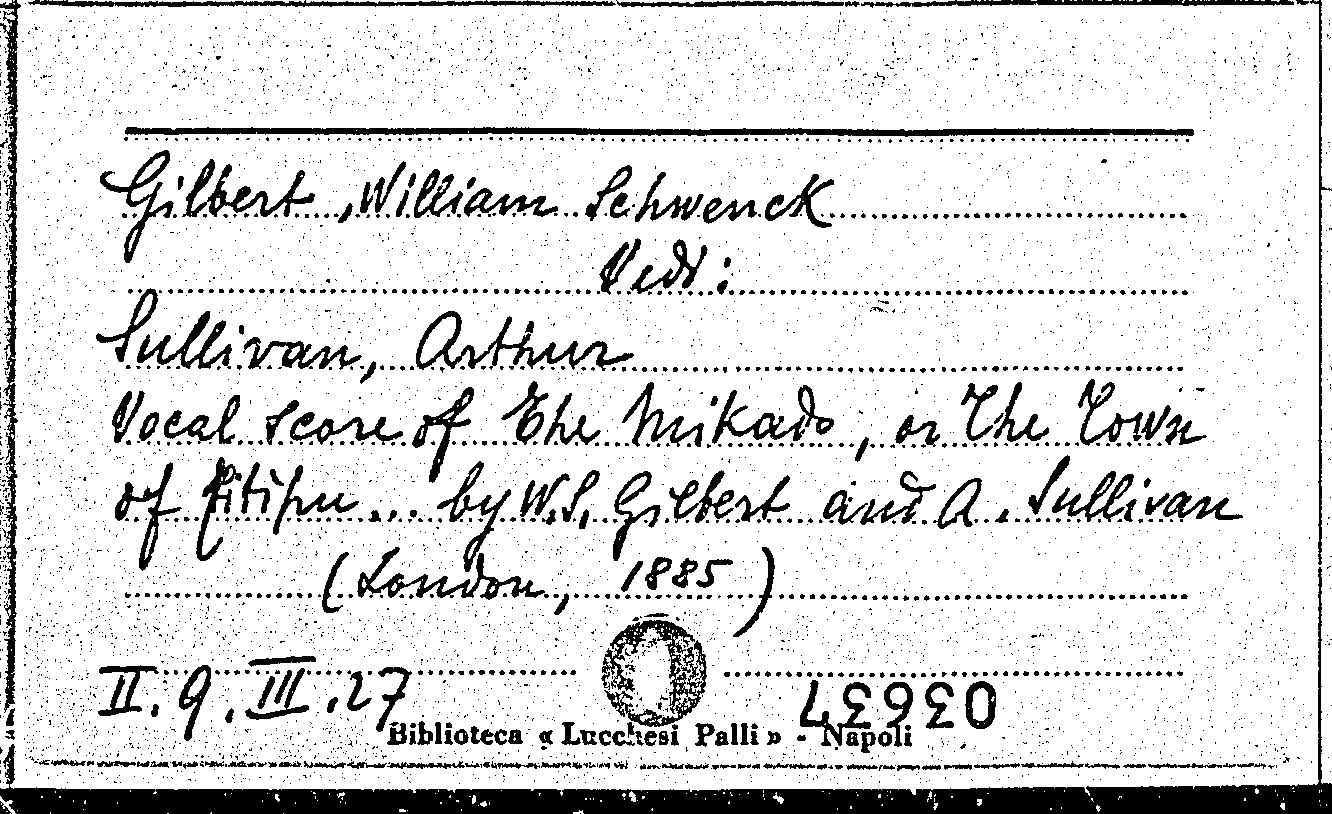 Gilbert, William Schwenck
Vedi:
Sullivan, Arthur
Vocal score of The Mikado, or The Town
of Titipu... by W.S. Gilbert and A. Sullivan
(London, 1885)
II. 9. III. 27
03637
Biblioteca « Lucchesi Palli » - Napoli